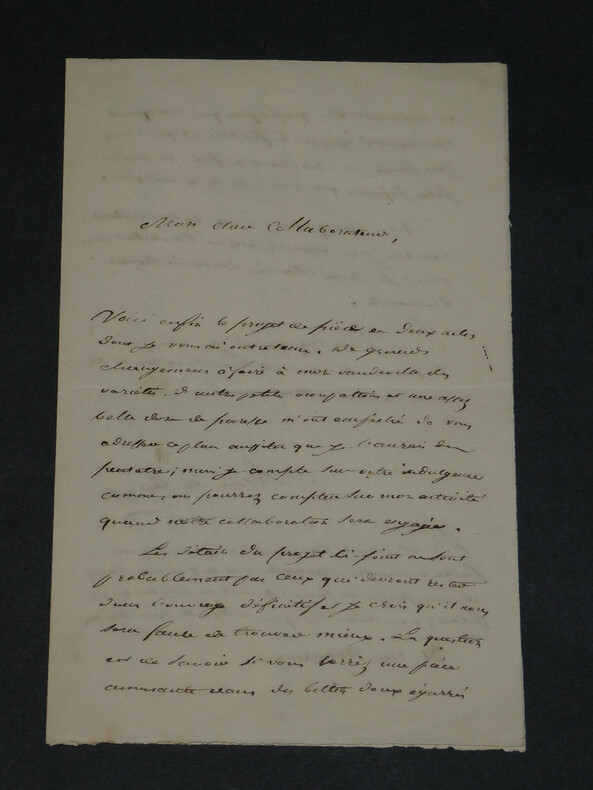 Mon cher Collaborateur,
Voici enfin le projet de pièce en deux actes
dont je vous ai entretenu. De grands
changemens à faire à mon vaudeville des
variétés, d'autres petites occupations et une assez
belle dose de paresse m'ont empêché de vous
adresser ce plan aussitot que je l'aurais du
peutetre; mais je compte sur votre indulgence
comme vous pourrez compter sur mon activité
quand notre collaboration sera engagée.
Les détails du projet ci-joint ne sont
probablement pas ceux qui devront rester
dans l'ouvrage définitif et je crois qu'il nous
sera facile de trouver mieux. La question
est de savoir si vous verrez une pièce
amusante dans des billets doux égarés